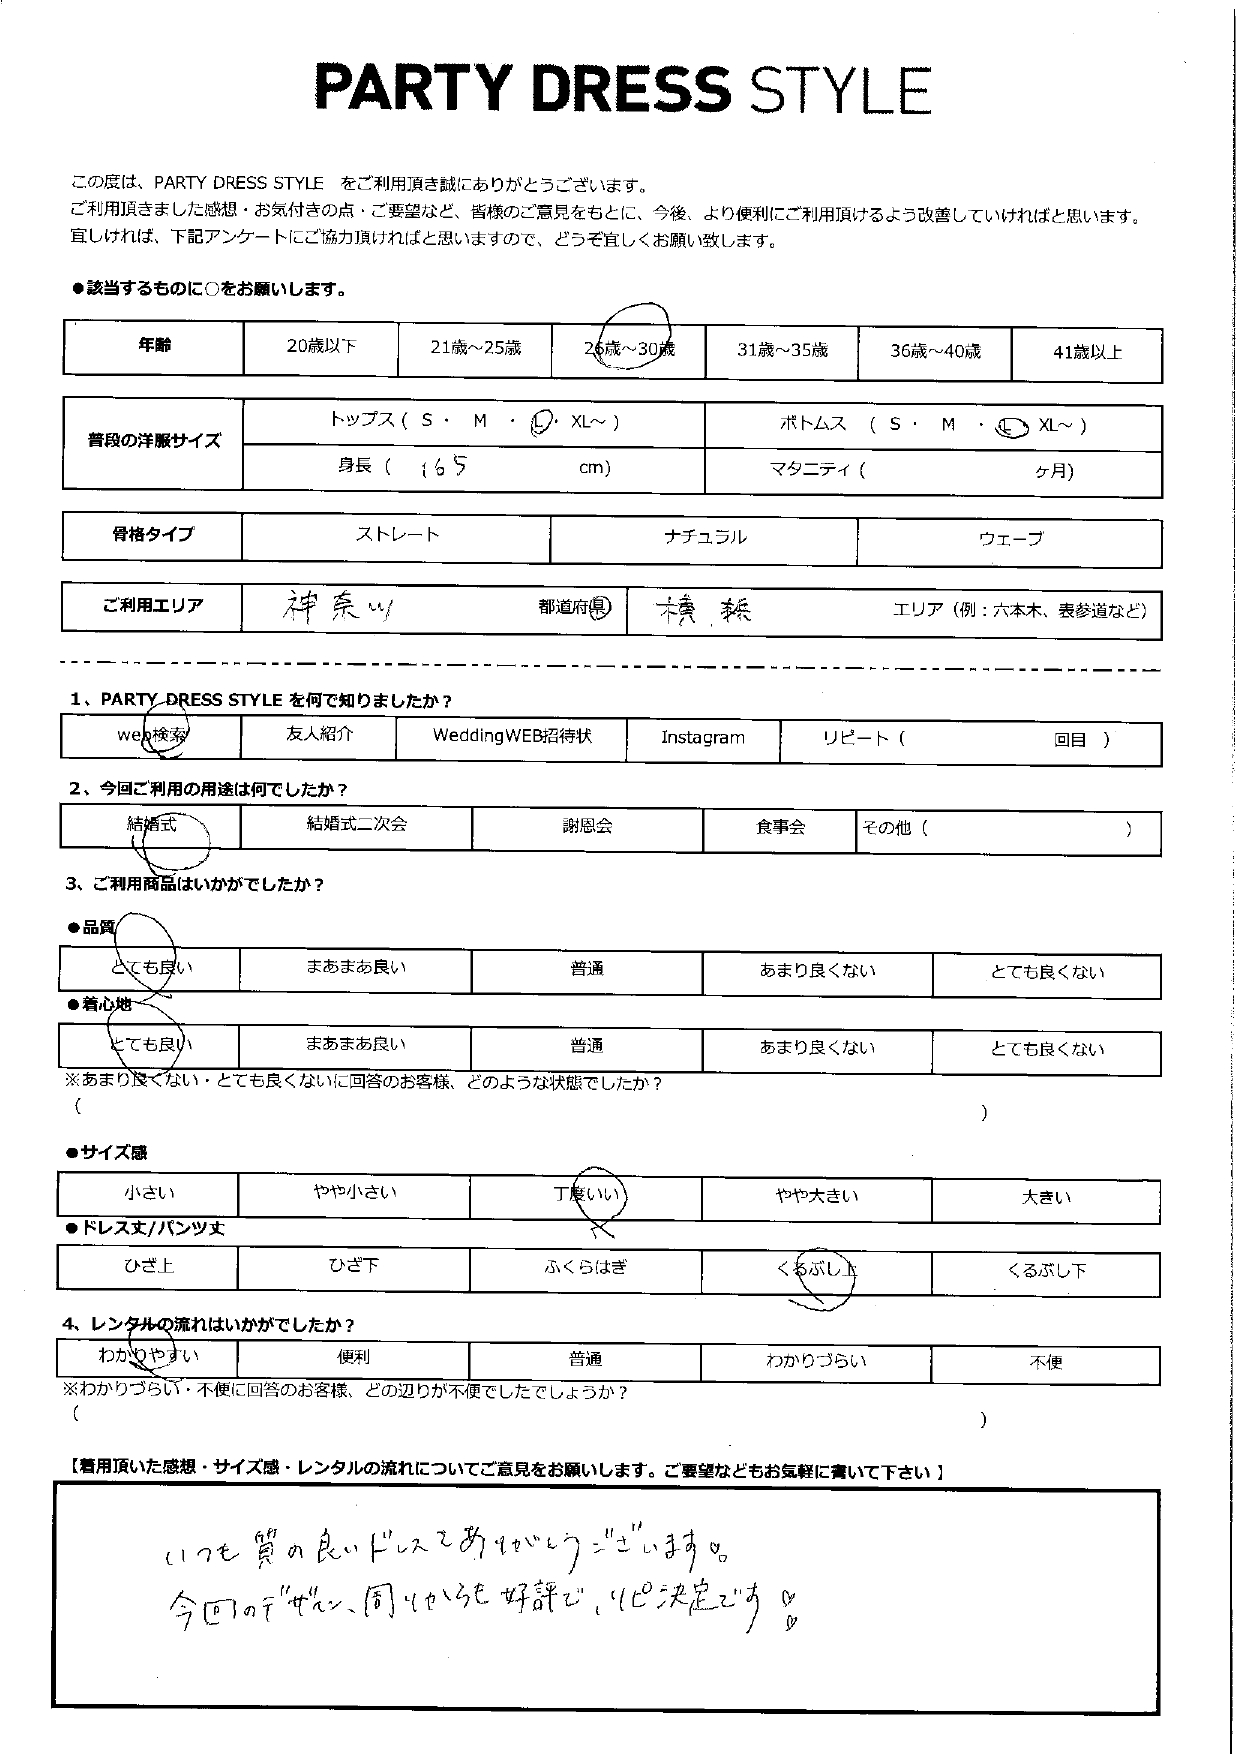 PARTY DRESS STYLE
この度は、PARTY DRESS STYLE をご利用頂き誠にありがとうございます。
ご利用頂きました感想・お気付きの点・ご要望など、皆様のご意見をもとに、今後、より便利にご利用頂けるよう改善していければと思います。
宜しければ、下記アンケートにご協力頂ければと思いますので、どうぞ宜しくお願い致します。
●該当するものに○をお願いします。
年齢 20歳以下 21歳～25歳 26歳～30歳 31歳～35歳 36歳～40歳 41歳以上
普段の洋服サイズ
トップス ( S ・ M ・ L ・ XL～ ) ボトムス ( S ・ M ・ L XL～ )
身長 ( 165 cm) マタニティ ( ヶ月)
骨格タイプ ストレート ナチュラル ウェーブ
ご利用エリア 神奈川 都道府県 横浜 エリア（例：六本木、表参道など）
1、PARTY DRESS STYLE を何で知りましたか？
web検索 友人紹介 WeddingWEB招待状 Instagram リピート ( 回目 )
2、今回ご利用の用途は何でしたか？
結婚式 結婚式二次会 謝恩会 食事会 その他 ( )
3、ご利用商品はいかがでしたか？
●品質
とても良い まあまあ良い 普通 あまり良くない とても良くない
●着心地
とても良い まあまあ良い 普通 あまり良くない とても良くない
※あまり良くない・とても良くないに回答のお客様、どのような状態でしたか？
( )
●サイズ感
小さい やや小さい 丁度いい やや大きい 大きい
●ドレス丈/パンツ丈
ひざ上 ひざ下 ふくらはぎ くるぶし上 くるぶし下
4、レンタルの流れはいかがでしたか？
わかりやすい 便利 普通 わかりづらい 不便
※わかりづらい・不便に回答のお客様、どの辺りが不便でしたでしょうか？
( )
【着用頂いた感想・サイズ感・レンタルの流れについてご意見をお願いします。ご要望などもお気軽に書いて下さい】
いつも質の良いドレスをありがとうございます♡。
今回のデザイン、周りからも好評で、リピ決定です♡♡